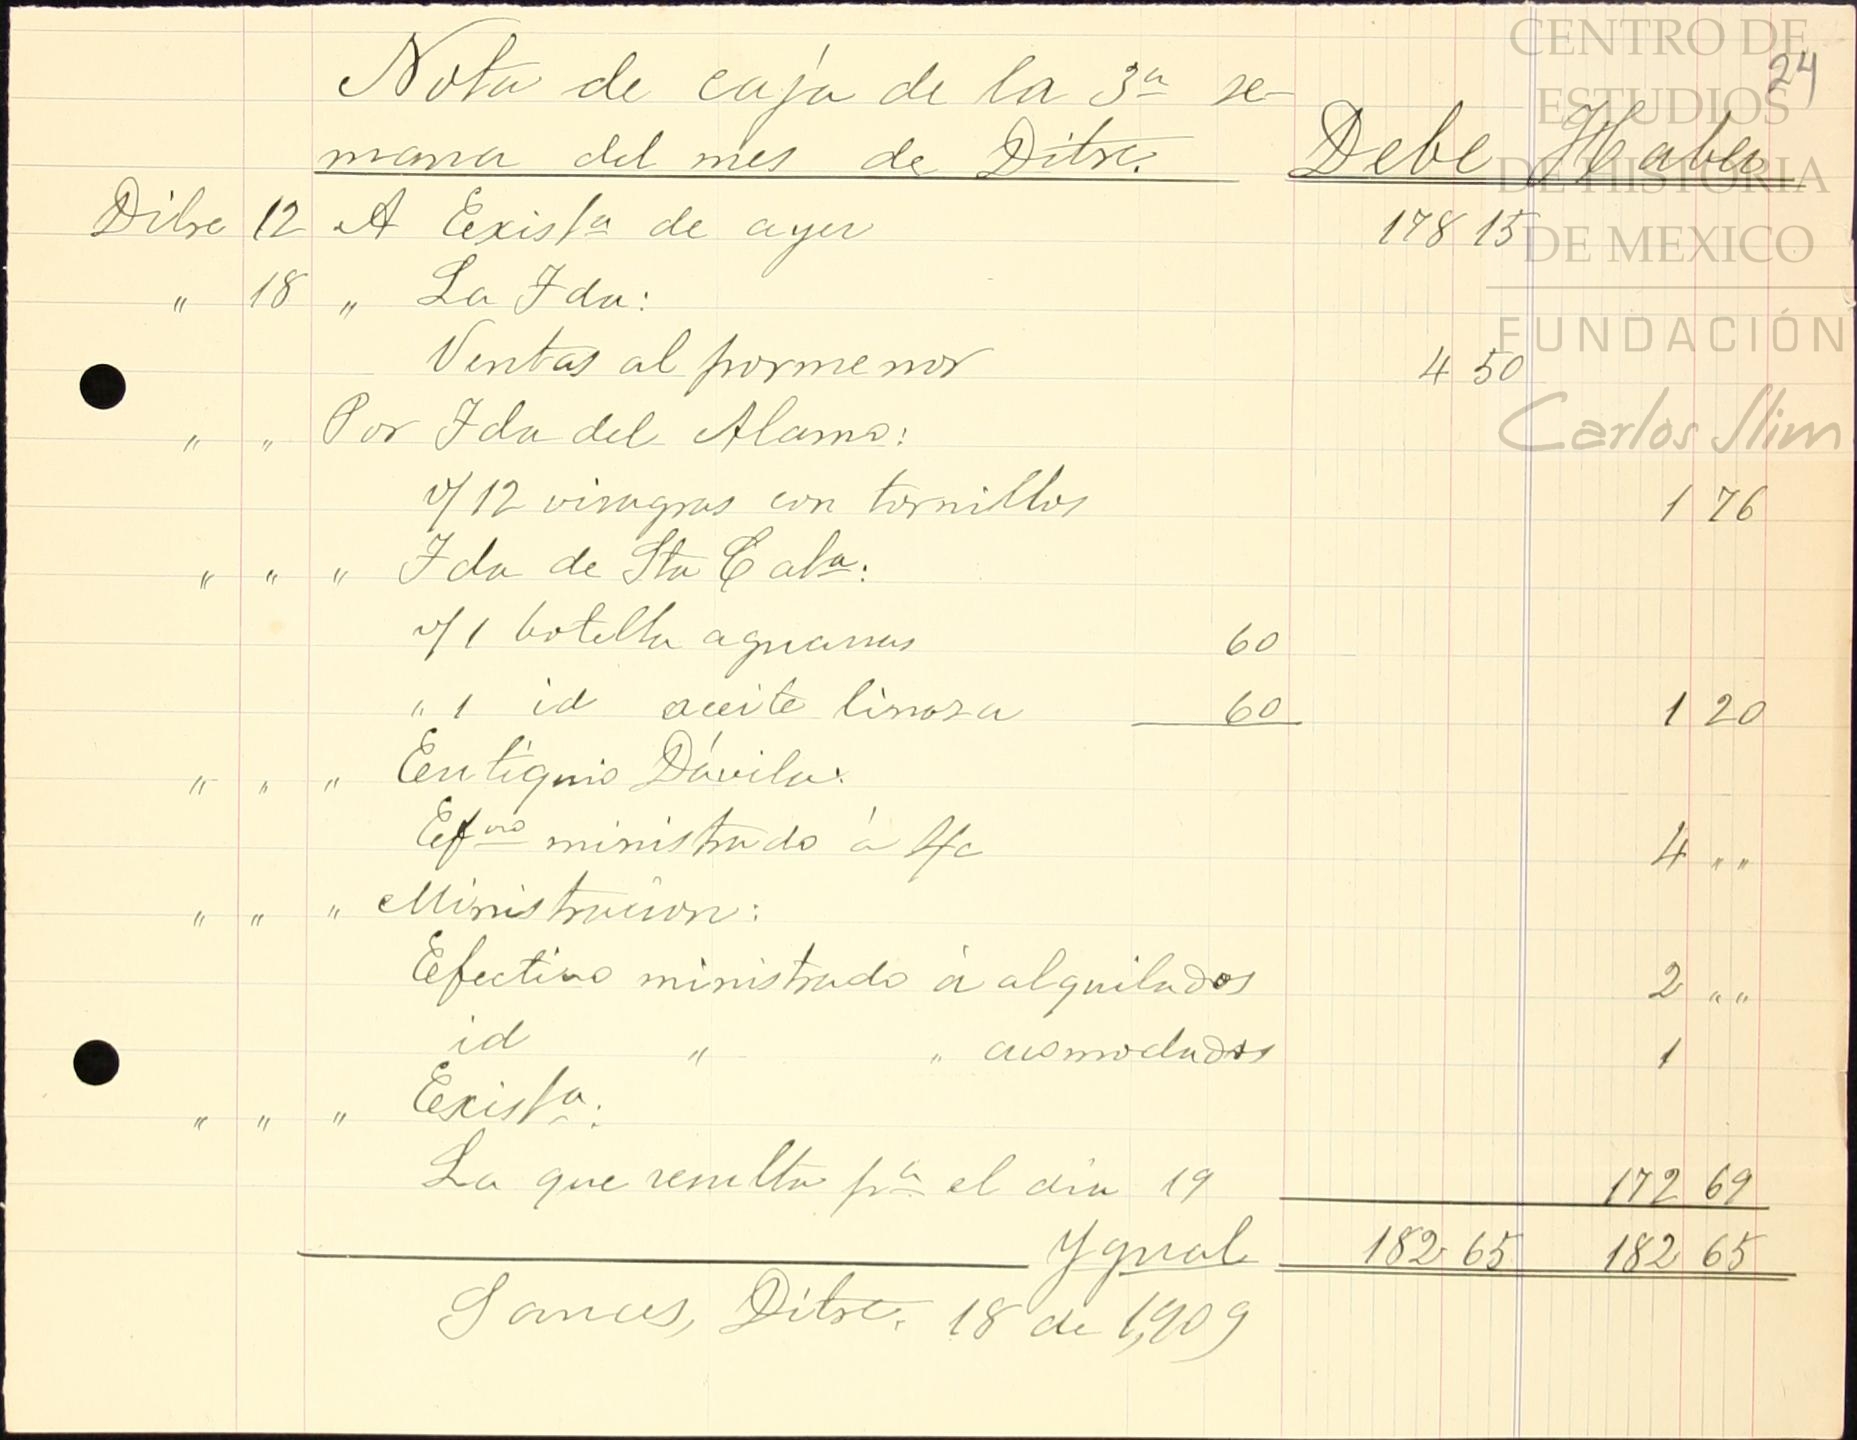 CENTRO DE
ESTUDIOS
DE HISTORIA
DE MEXICO
FUNDACIÓN
Carlos Slim
24
Nota de caja de la 3ª se-
mana del mes de Dibre. Debe Haber
Dibre 12 A Existª de ayer 178 15
" 18 " La Fda:
Ventas al pormenor 4 50
" " Por Fda del Alamo:
v/ 12 visagras con tornillos 1 76
" " " Fda de Sta Catª:
v/ 1 botella aguarras 60
" 1 id aceite linaza 60 1 20
" " " Eutiquio Dávila:
Efvo ministrado á %c 4 " "
" " " Ministracion:
Efectivo ministrado á alquilados 2 " "
id " " acomodados 1
" " " Existª:
La que resulta pª el dia 19 172 69
Ygual 182 65 182 65
Sauces, Dibre. 18 de 1,909